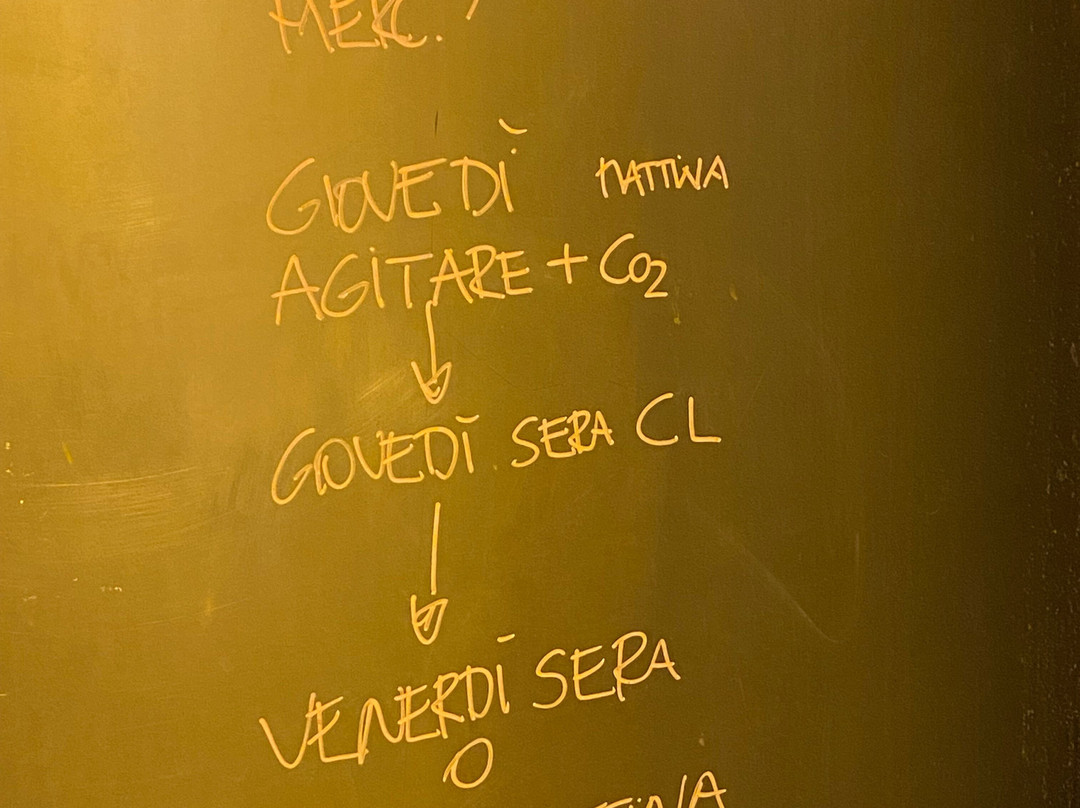 MERC.
GIOVEDÌ MATTINA
AGITARE + CO2
GIOVEDÌ SERA CL
VENERDÌ SERA
O